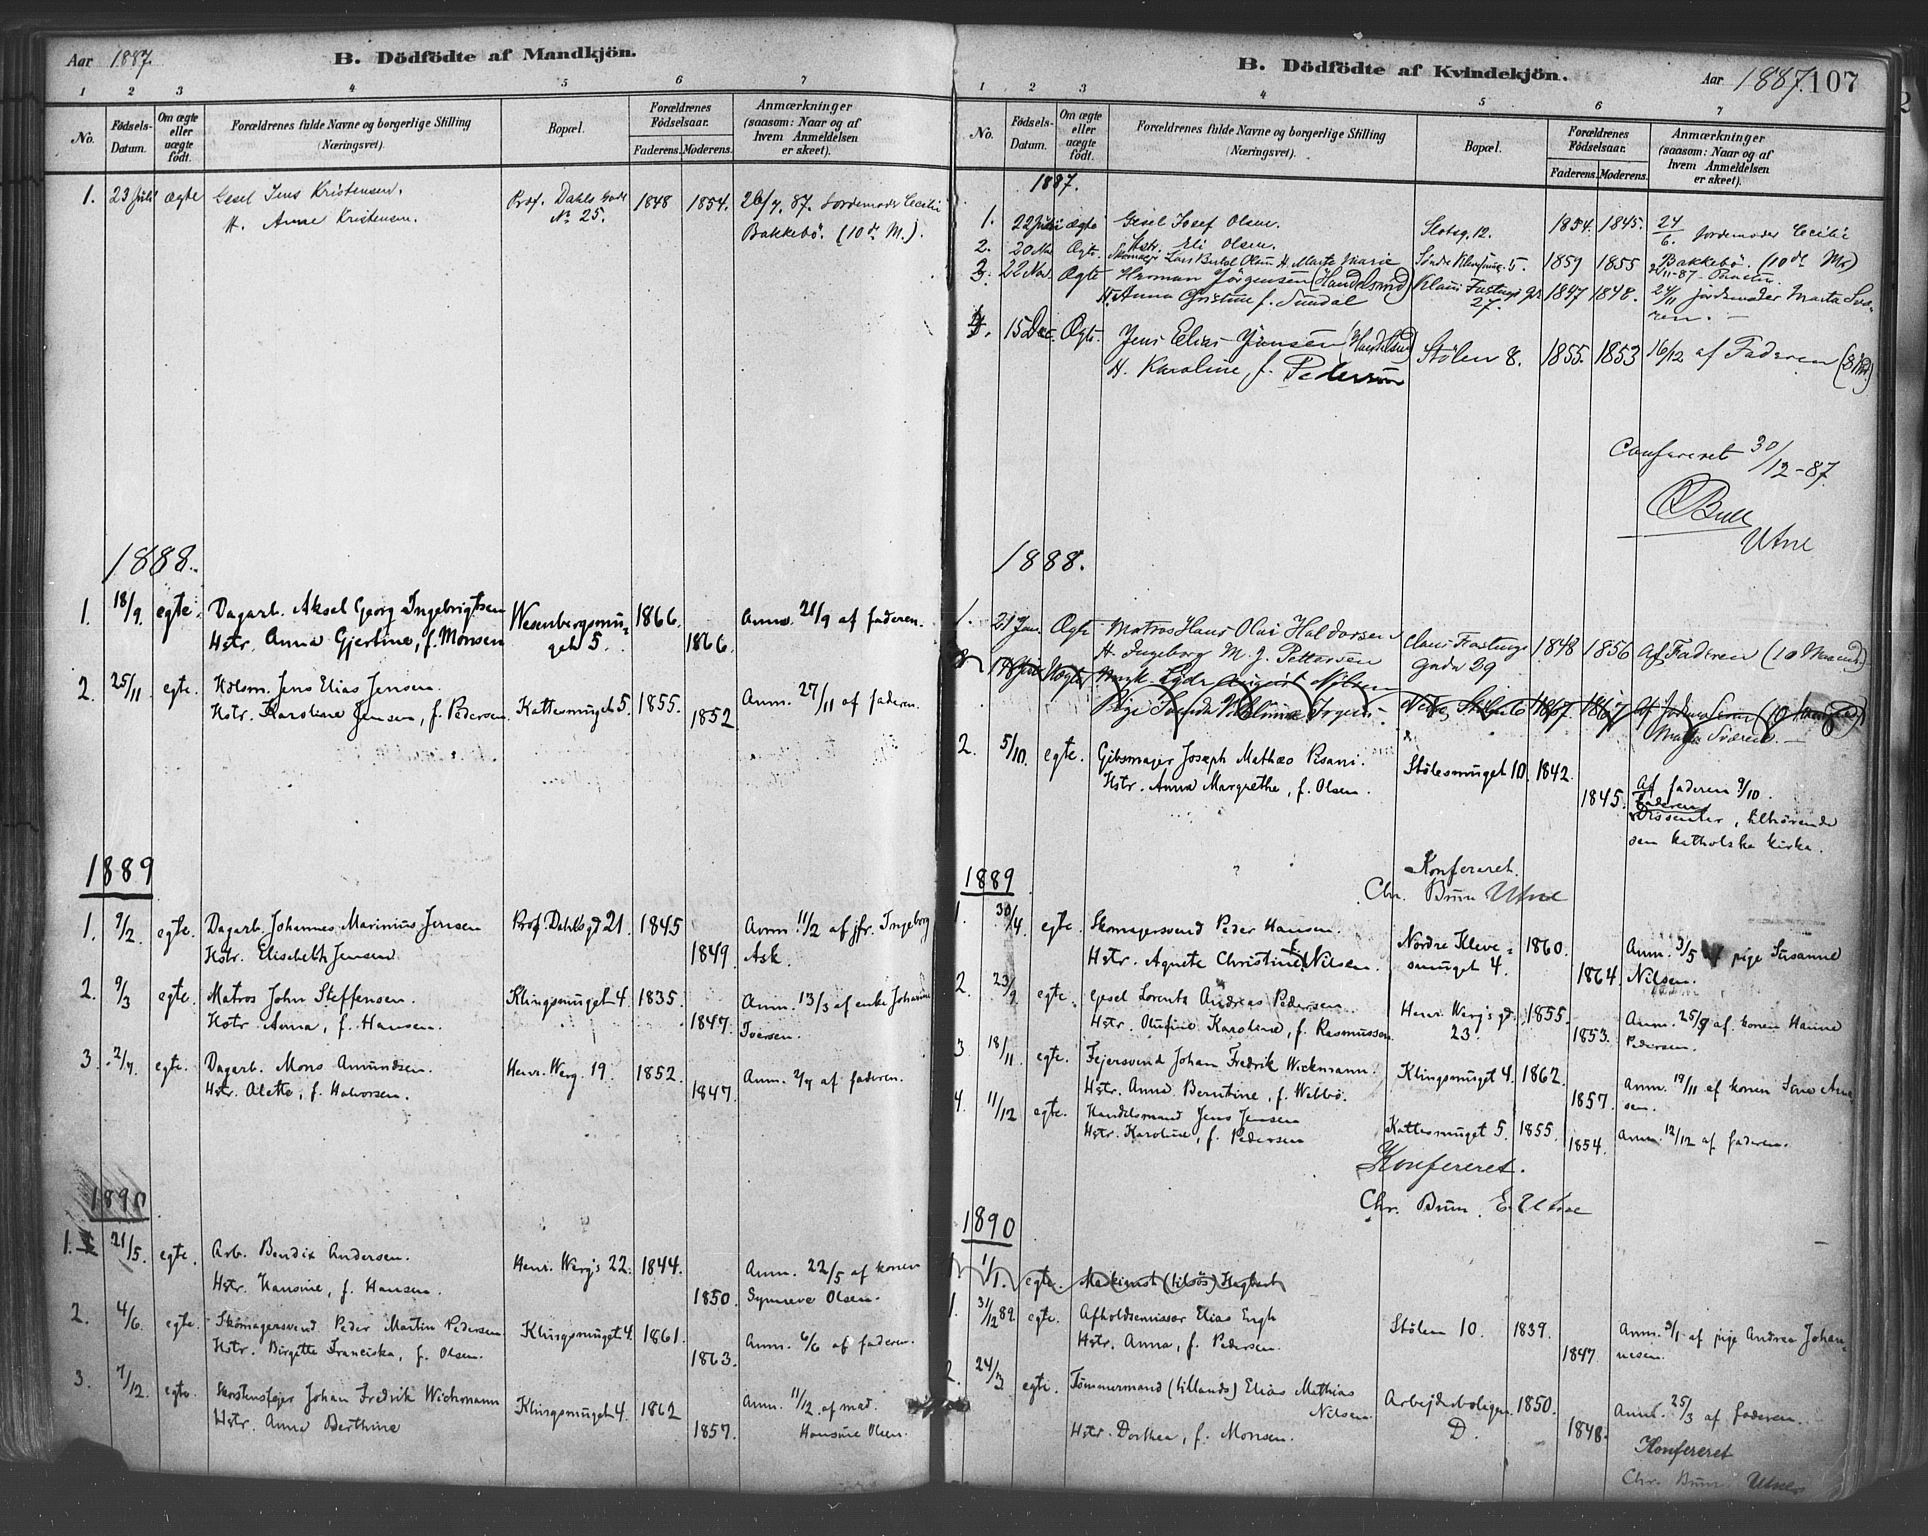 Aar 1887.
B. Dödfödte af Mandkjön.
1 2 3 4 5 6 7
No. Födsels-Datum. Om ægte eller uægte födt. Forældrenes fulde Navne og borgerlige Stilling (Næringsvei). Bopæl. Forældrenes Födselsaar. Faderens. Moderens. Anmærkninger (saasom: Naar og af hvem Anmeldelsen er skeet).
1. 23 Juli ægte Gesel Jens Kristensen. Prof. Dahls Gade 1848 1854. 26/7. 87. Jordemoder Cecilie
H. Anne Kristensen. No 25. Bakkebö. (10de M.).
1888.
1. 18/9. egte. Dagarb. Aksel Georg Ingebrigtsen Wesenbergsmu- 1866. Anm. 21/9 af faderen.
Hstr. Anna Gjertine, f. Monsen get 5. 1866.
2. 25/11 egte. Hdlsm. Jens Elias Jensen Kattesmuget 5. 1855. Anm. 27/11 af faderen.
Hstr. Karoline Jensen, f. Pedersen 1852.
1889
1. 9/2. egte. Dagarb. Johannes Marinius Jensen Prof. Dahls gt 21. 1845 Anm. 11/2 af jfr. Ingeborg
Hstr. Elisebeth Jensen 1849. Ask.
2. 9/3 egte. Matros John Steffensen. Klingsmuget 4. 1835. Anm. 13/3 af enke Johanne
Hstr. Anna, f. Hansen. 1847. Iversen.
3. 2/7. egte. Dagarb. Mons Amundsen. Henr. Werg. 19. 1852. Anm. 2/7 af faderen.
Hstr. Alette, f. Halvorsen. 1847.
1890
1. 21/5. egte. Arb. Bendix Andersen. Henr. Werg's 22. 1844. Anm. 22/5 af konen
Hstr. Hansine, f. Hansen. 1850. Synneve Olsen.
2. 4/6. egte. Skomagersvend Peder Martin Pedersen Klingsmuget 4. 1861. Anm. 6/6 af faderen.
Hstr. Birgitte Franciska, f. Olsen. 1863.
3. 7/12. egte. Skorstensfejer Johan Fredrik Wichmann Klingsmuget 4. 1862 Anm. 11/12. af mad.
Hstr. Anna Berthine 1857. Hansine Olsen.
B. Dödfödte af Kvindekjön.
Aar 1887. 107
1 2 3 4 5 6 7
No. Födsels-Datum. Om ægte eller uægte födt. Forældrenes fulde Navne og borgerlige Stilling (Næringsvei). Bopæl. Forældrenes Födselsaar. Faderens. Moderens. Anmærkninger (saasom: Naar og af hvem Anmeldelsen er skeet).
1887.
1. 22 Juni Ægte Gesel Josef Olsen. Slotsg. 12. 1854. 1845. 24/6. Jordemoder Cecilie
Hstr. Eli Olsen. Bakkebö. (10de M.)
2. 20 Nov. Ægte. Lars Bertel Olsen H. Marte Marie Söndre Klevesmug. 5. 1859 1855
3. 22 Nov. Ægte Herman Jörgensen (Handelsmd) Klaus Fastings Gd. 1847 1848. 24/11 Jordemoder Marta Svæ-
H. Anna Cristine f. Sundal 27. ren. -
4. 15 Dec. Ægte. Jens Elias Jensen (Handelsmd) Stölen 8. 1855. 1853 16/12 af Faderen (8 Md)
H. Karoline, f. Pedersen
Confereret 30/12-87.
Bull
Utne
1888.
1. 21 Jan. Ægte Matros Hans Olai Haldorsen Claus Fastings 1848 1856 Af Faderen (10 Maaned)
H. Ingeborg M. J. Pettersen Gade 29
August Nilsen
Pige 1867. 1867
2. 5/10. egte. Gibsmager Joseph Mathæo Pisani. Stölesmuget 10. 1842. Af faderen 9/10.
Hstr. Anna Margrethe, f. Olsen. 1845. Faderen
Dissenter, tilhörende
den katholske kirke.
Konfereret.
Chr. Brun Utne
1889
1. 30/4. egte. Skomagersvend Peder Hansen. Nordre Kleve- 1860. Anm. 3/5 af pige Susanne
Hstr. Agnete Christine f. Nilsen. smuget 4. 1864. Nilsen.
2. 23/9. egte. Gesel Lorentz Andreas Pedersen Henr. Werg's gd. 1855. Anm. 25/9 af konen Hanne
Hstr. Olufine Karoline, f. Rasmussen 23. 1853. Pedersen.
3. 18/11 egte. Fejersvend Johan Fredrik Wichmann. Klingsmuget 4. 1862. Anm. 19/11 af konen
Hstr. Anna Berntine, f. Webbö. 1857. sen.
4. 11/12 egte. Handelsmand Jens Jensen Kattesmuget 5. 1855. Anm. 12/12 af faderen.
Hstr. Karoline, f. Pedersen 1854.
Konfereret.
Chr. Brun. E. Utne
1890
1. 1/1. egte. Maskinist (tilsös)
1. 31/12 89. egte. Afholdsemissær Elias Engh Stölen 10. 1839. Anm. 3/1 af pige Andrea Johan-
Hstr. Anna, f. Pedersen. 1847. nesen.
2. 24/3 egte. Tömmermand (tillands) Elias Mathias Arbejderboligen 1850. Anm. 25/3 af faderen.
Nilsen. D.
Hstr. Dorthea, f. Monsen. 1848.
Konfereret
Chr. Brun Utne